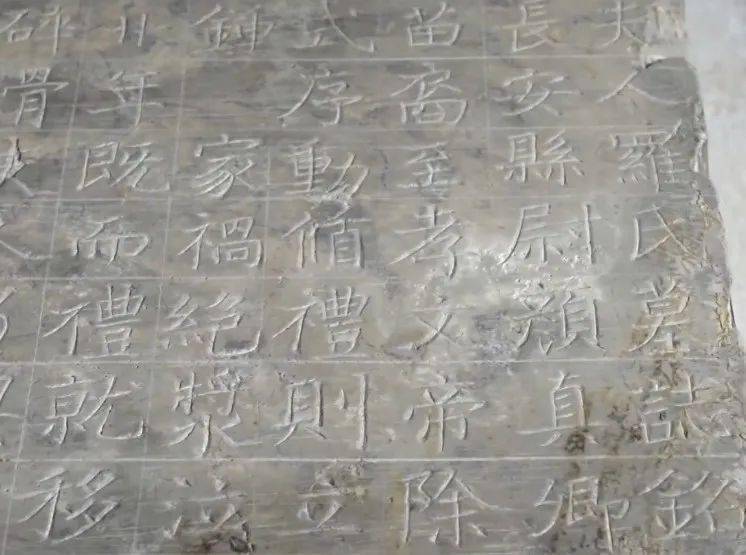 夫人羅氏墓誌銘
長安縣尉顏真卿
苗裔至孝文帝除
式序動循禮則立
鍾家禍絕漿泣
年既而禮就移
骨